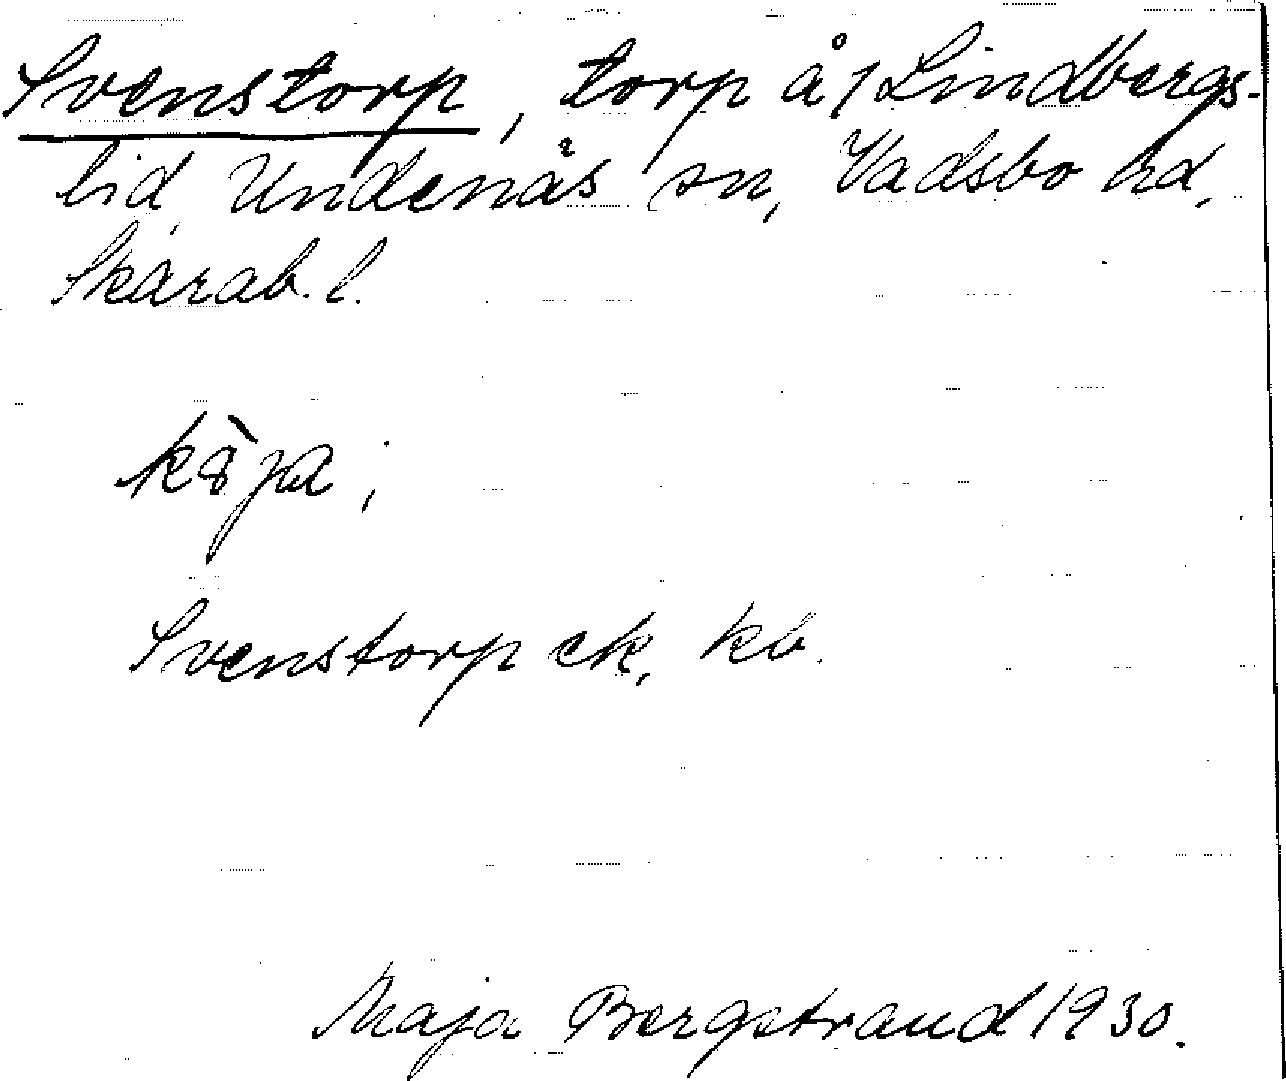 Svenstorp, torp å 1 Lindbergs-
lid, Undenäs sn, Vadsbo hd,
Skarab. l.
Svenstorp ek, kb.
Maja Bergstrand 1930.